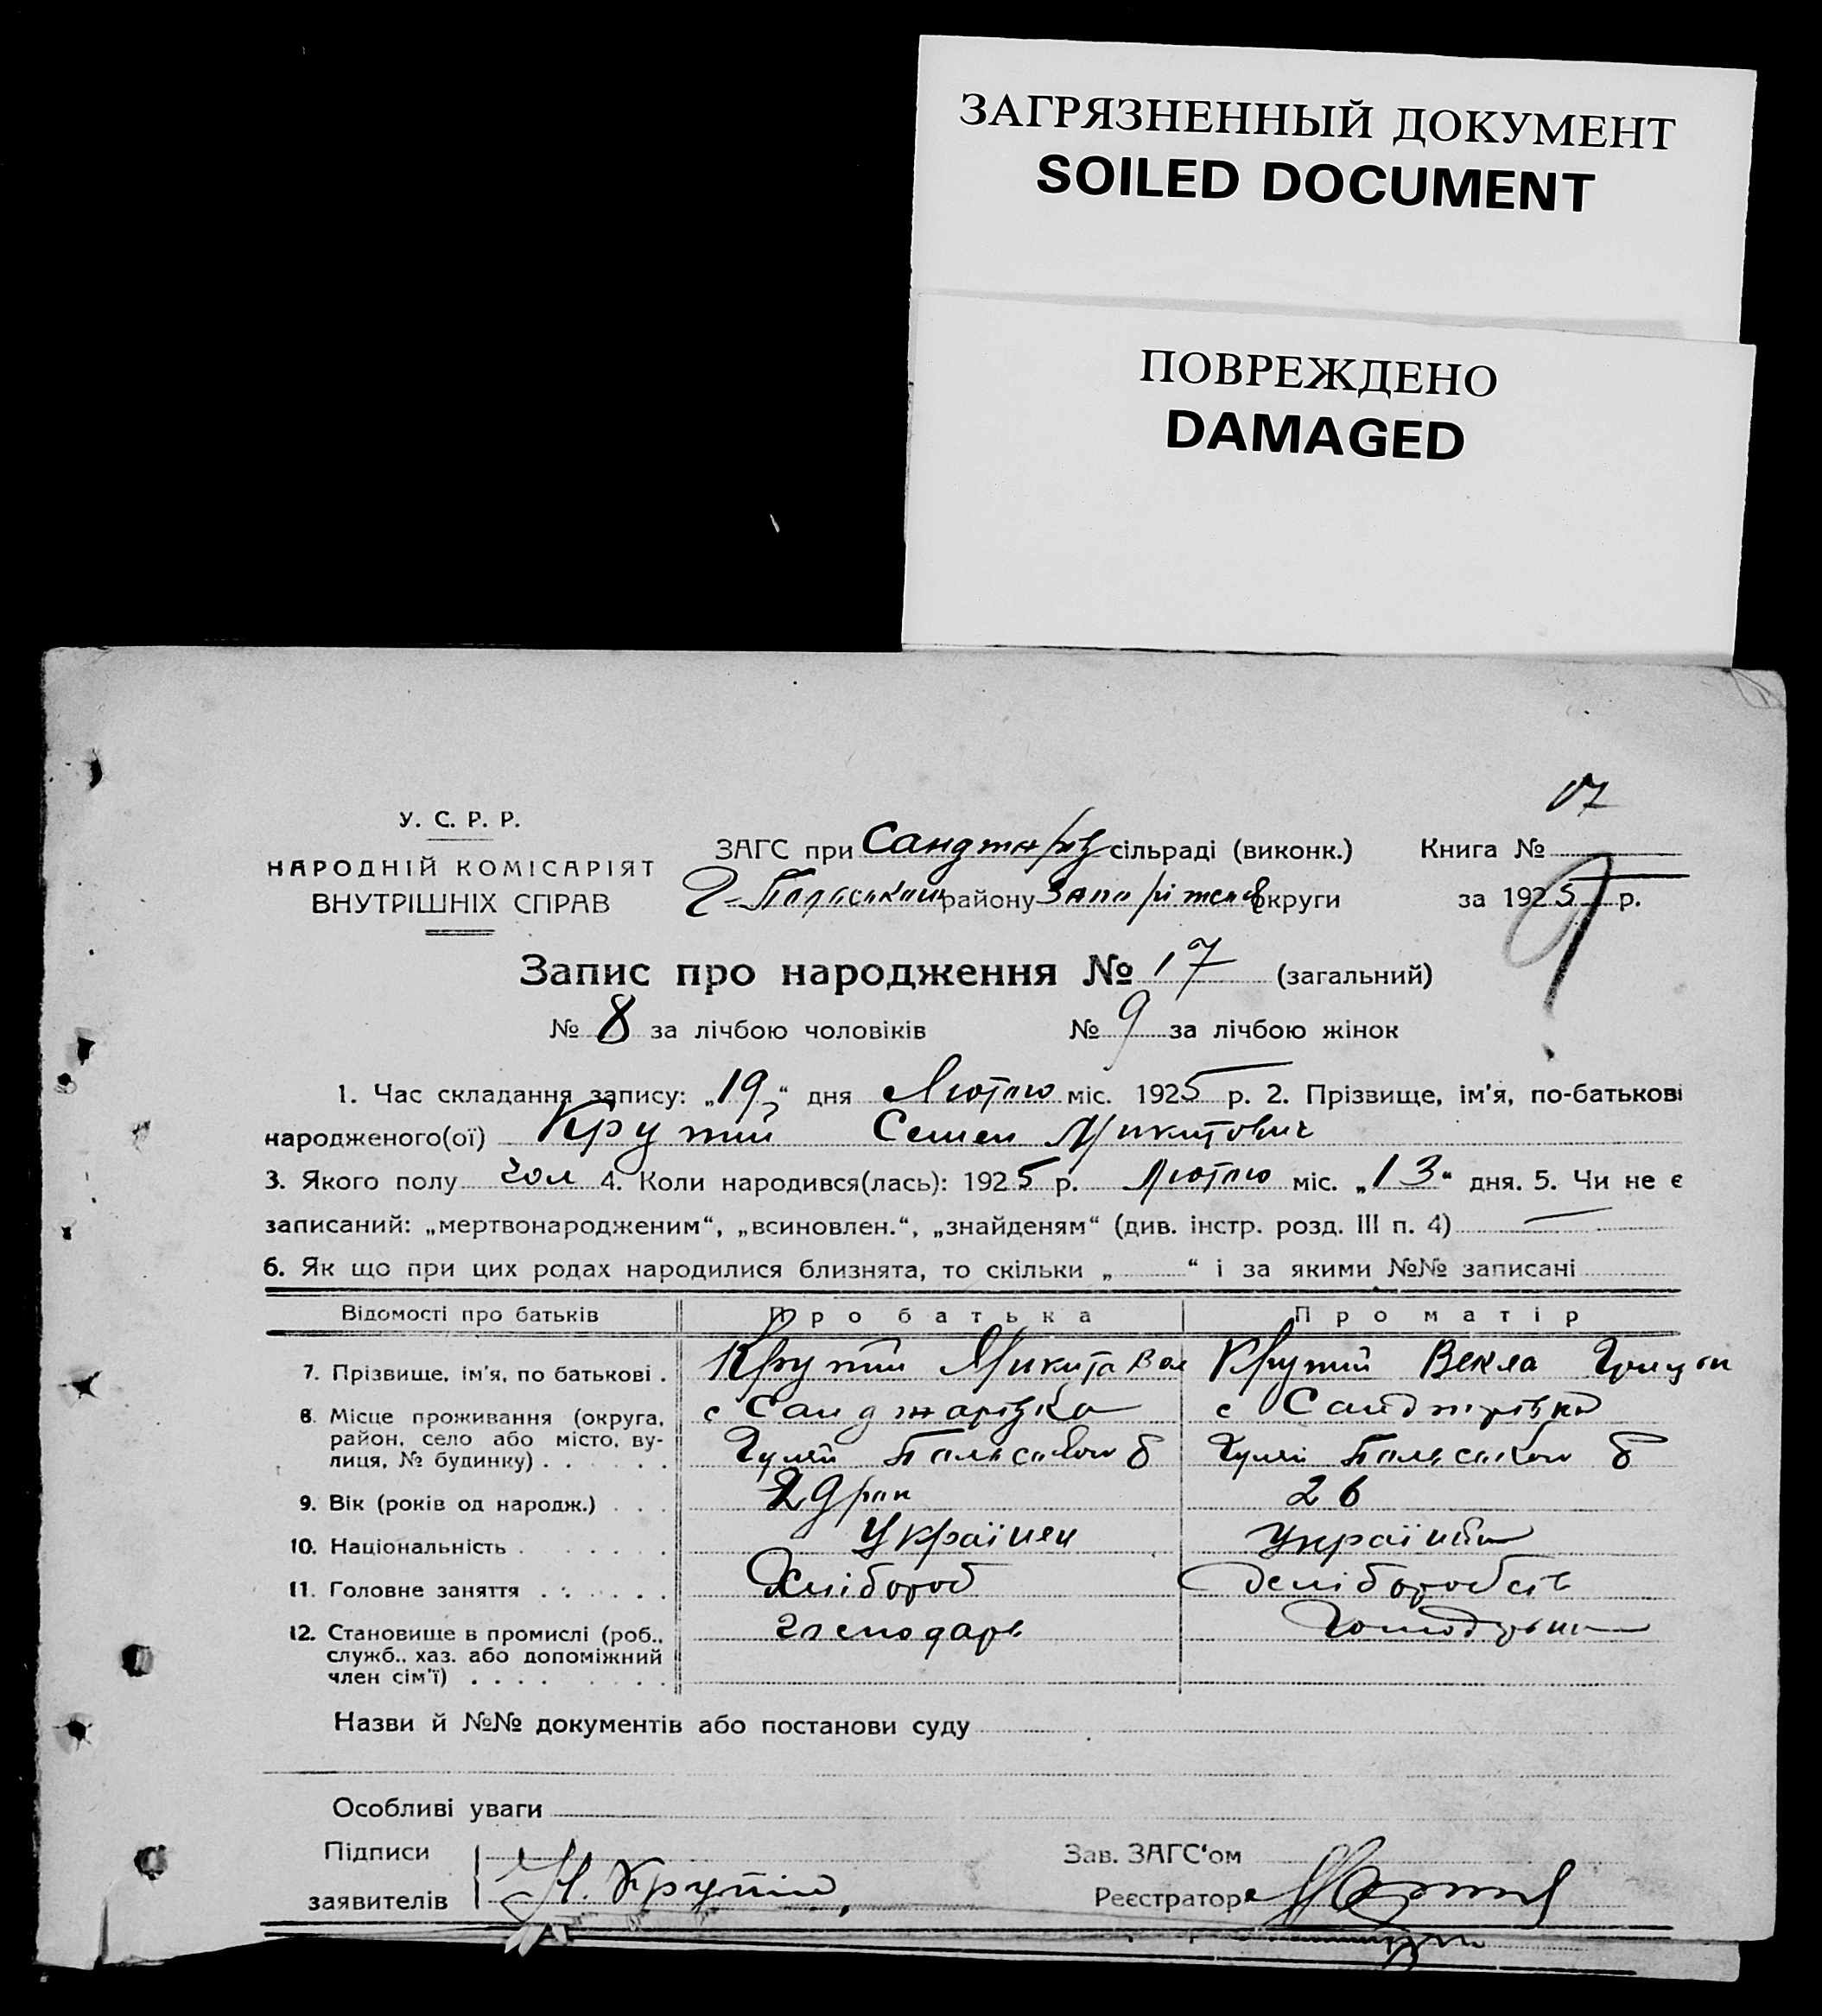 ЗАГРЯЗНЕННЫЙ ДОКУМЕНТ
SOILED DOCUMENT
ПОВРЕЖДЕНО
DAMAGED
17
У. С. Р. Р.
НАРОДНІЙ КОМІСАРІЯТ
ВНУТРІШНІХ СПРАВ
ЗАГС при сільраді (виконк.) Книга №
району округи за 1925 р.
9
Запис про народження № 17 (загальний)
№ 8 за лічбою чоловіків № 9 за лічбою жінок
1. Час складання запису: „19“ дня Лютого міс. 1925 р. 2. Прізвище, ім'я, по-батькові
народженого(ої) Крутий Семен Микитович
3. Якого полу чол 4. Коли народився(лась): 1925 р. Лютого міс. „13“ дня. 5. Чи не є
записаний: „мертвонародженим“, „всиновлен.“, „знайденям“ (див. інстр. розд. III п. 4) —
6. Як що при цих родах народилися близнята, то скільки „ “ і за якими №№ записані
Відомості про батьків Про батька Про матір
7. Прізвище, ім'я, по батькові . Крутий Микита Крутий Векла
8. Місце проживання (округа, с Санджарівка с Санджарівка
район, село або місто, ву-
лиця, № будинку) . . . . . . Гуляй Гуляй
9. Вік (років од народж.) . . . 29 26
10. Національність . . . . . . Українец Українка
11. Головне заняття . . . . . . Хлібороб
12. Становище в промислі (роб., господарь
служб., хаз. або допоміжний
член сім'ї) . . . . . . . .
Назви й №№ документів або постанови суду
Особливі уваги
Підписи Зав. ЗАГС‘ом
заявителів Крутий Реєстратор